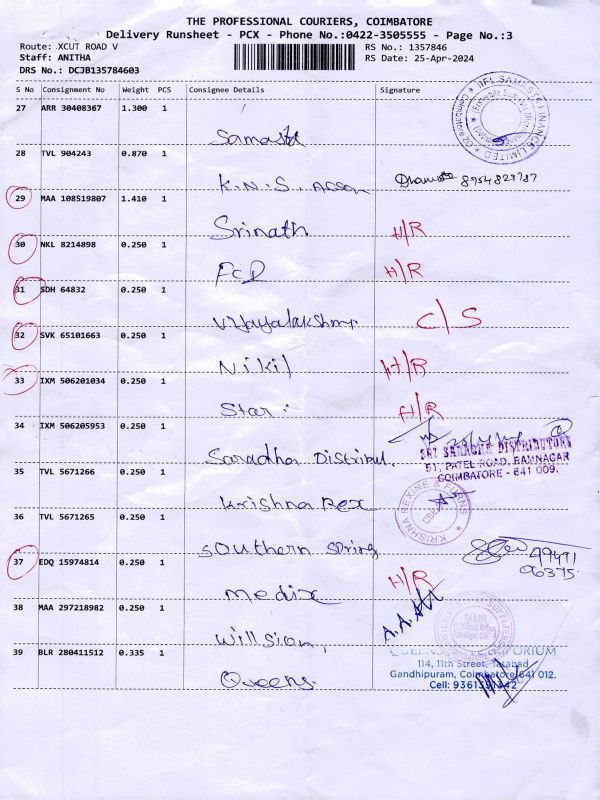 THE PROFESSIONAL COURIERS, COIMBATORE
Delivery Runsheet - PCX - Phone No.:0422-3505555 - Page No.:3
Route: XCUT ROAD V
RS No.: 1357846
Staff: ANITHA
RS Date: 25-Apr-2024
DRS No.: DCJB135784603
S No Consignment No Weight PCS Consignee Details Signature
27 ARR 30408367 1.300 1
Samasta
IIFL SAMASTA FINANCE LIMITED
28 TVL 904243 0.870 1
K.N.S. Assan
29 MAA 108519807 1.410 1
Srinath H/R
30 NKL 8214898 0.250 1
FCD H/R
31 SDH 64832 0.250 1
Vijayalakshmi C/S
32 SVK 65101663 0.250 1
Nikil H/R
33 IXM 506201034 0.250 1
Star: H/R
34 IXM 506205953 0.250 1
Saradha Distribut.
SRI SARADHA DISTRIBUTORS
51, PATEL ROAD, RAMNAGAR
COIMBATORE - 641 009.
35 TVL 5671266 0.250 1
Krishna Rex
KRISHNA REXINE &
36 TVL 5671265 0.250 1
Southern Spring
06375
37 EDQ 15974814 0.250 1
Medix H/R
38 MAA 297218982 0.250 1
Willsion,
39 BLR 280411512 0.335 1
Queens.
114, 11th Street, Tatabad
Gandhipuram, Coimbatore 641 012.